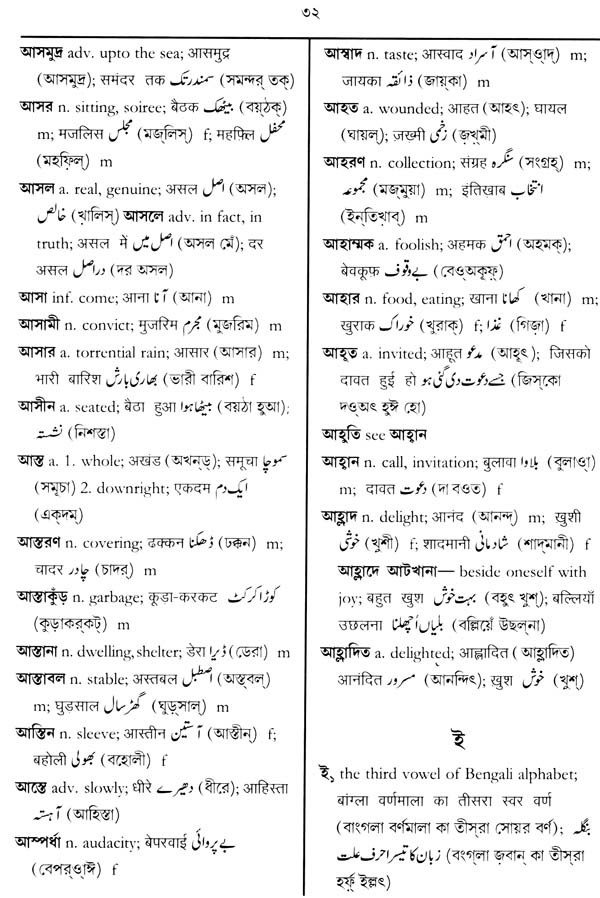 ৩২
আসমুদ্র adv. upto the sea; आसमुद्र
(আসমুদ্র); समंदर तक سمندر تک (সমন্দর্ তক্)
আসর n. sitting, soiree; बैठक بیٹھک (বয়্ঠক্)
m; मजलिस مجلس (মজ্‌লিস্) f; महफ़िल محفل
(মহফ়িল্) m
আসল a. real, genuine; असल اصل (অসল্);
خالص (খ়ালিস্) আসলে adv. in fact, in
truth; असल में اصل میں (অসল মেঁ); दर
असल دراصل (দর অসল)
আসা inf. come; आना آنا (আনা) m
আসামী n. convict; मुजरिम مجرم (মুজরিম) m
আসার a. torrential rain; आसार (আসার) m;
भारी बारिश بھاری بارش (ভারী বারিশ) f
আসীন a. seated; बैठा हुआ بیٹھا ہوا (বয়ঠা হুআ);
نشستہ (নিশস্তা)
আস্ত a. 1. whole; अखंड (অখন্ড্); समूचा سموچا
(সমূচা) 2. downright; एकदम ایک دم
(এক্‌দম্)
আস্তরণ n. covering; ढक्कन ڈھکنا (ঢক্কন) m;
चादर چادر (চাদর্) m
আস্তাকুঁড় n. garbage; कूडा-करकट کوڑا کرکٹ
(কূড়াকর্‌কট্) m
আস্তানা n. dwelling, shelter; डेरा ڈیرا (ডেরা) m
আস্তাবল n. stable; अस्तबल اصطبل (অস্ত্‌বল্)
m; घुडसाल گھڑسال (ঘুড়্‌সাল্) m
আস্তিন n. sleeve; आस्तीन آستین (আস্তীন্) f;
बहोली بھولی (বহোলী) f
আস্তে adv. slowly; धीरे دھیرے (ধীরে); आहिस्ता
آہستہ (আহিস্তা)
আস্পর্ধা n. audacity; बेपरवाई بے پروائی
(বেপর্‌ওয়াঈ) f
আস্বাদ n. taste; आस्वाद آسراد (আস্ওয়াদ্) m;
जायका ذائقہ (জ়ায়কা) m
আহত a. wounded; आहत (আহৎ); घायल
(ঘায়ল্); ज़ख्मी زخمی (জ়খ়্‌মী)
আহরণ n. collection; संग्रह سنگرہ (সংগ্রহ্) m;
مجموعہ (মজ্‌মুয়া) m; इंतिखाब انتخاب
(ইন্‌তিখ়াব্) m
আহাম্মক a. foolish; अहमक احمق (অহমক্);
बेवकूफ़ بے وقوف (বেওঅকূফ়্)
আহার n. food, eating; खाना کھانا (খানা) m;
खुराक خوراک (খ়ুরাক্) f; غذا (গিজ়া) f
আহূত a. invited; आहूत مدعو (আহূৎ); जिसको
दावत हुई हो جسے دعوت دی گئی ہو (জিস্‌কো
দওঅৎ হুঈ হো)
আহূতি see আহ্বান
আহ্বান n. call, invitation; बुलावा بلاوا (বুলাওয়া)
m; दावत دعوت (দাবওত) f
আহ্লাদ n. delight; आनंद (আনন্দ) m; खुशी
خوشی (খ়ুশী) f; शादमानी شادمانی (শাদ্‌মানী) f
আহ্লাদে আটখানা— beside oneself with
joy; बहुत खुश بہت خوش (বহুৎ খ়ুশ্); बल्लियाँ
उछलना بلیاں اُچھلنا (বল্লিয়েঁ উছল্‌না)
আহ্লাদিত a. delighted; आह्लादित (আহ্লাদিত)
आनंदित مسرور (আনন্দিৎ); खुश خوش (খ়ুশ্)
ই
ই, the third vowel of Bengali alphabet;
बांग्ला वर्णमाला का तीसरा स्वर वर्ण
(বাংগলা বর্ণমালা কা তীস্‌রা সোয়র বর্ণ); بنگلہ
زبان کا تیسرا حرف علت (বংগ্‌লা জ়বান্ কা তীস্‌রা
হর্ফ়্ ইল্লৎ)